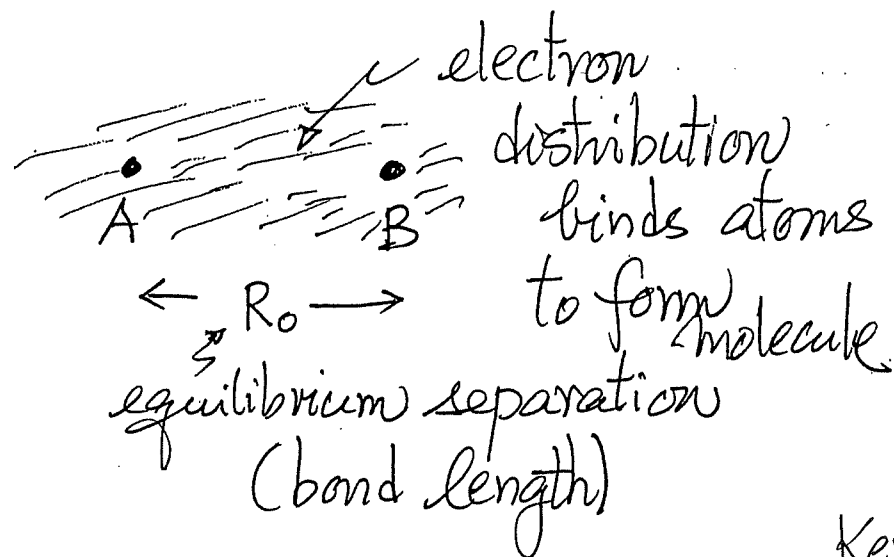 electron
distribution
binds atoms
to form molecule
A B
R₀
equilibrium separation
(bond length)
Ke